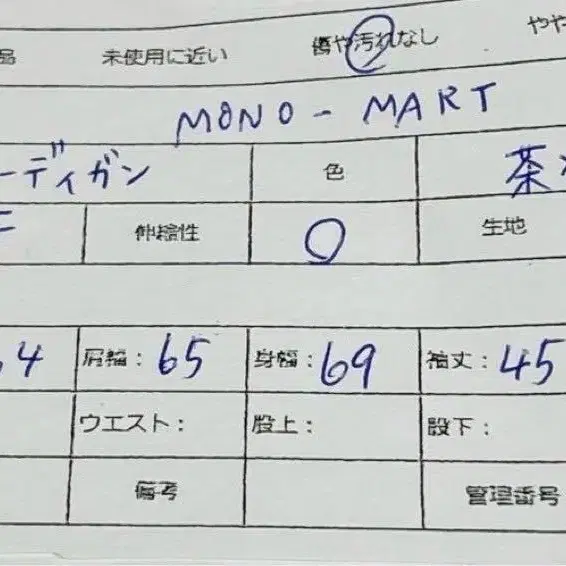 品 未使用に近い 傷や汚れなし やや
MONO-MART
ーディガン 色 茶
伸縮性 ○ 生地
4 肩幅: 65 身幅: 69 袖丈: 45
ウエスト: 股上: 股下:
備考 管理番号